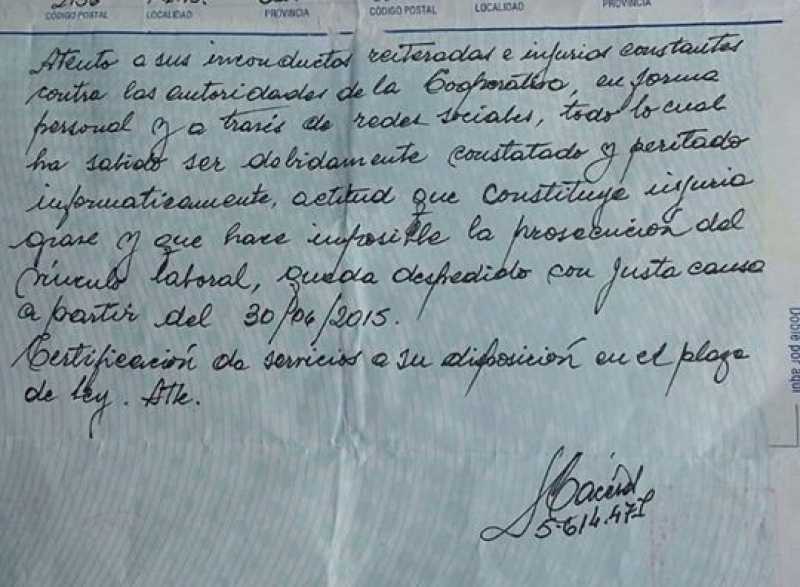 CÓDIGO POSTAL LOCALIDAD PROVINCIA CÓDIGO POSTAL LOCALIDAD PROVINCIA
Atento a sus inconductas reiteradas e injurias constantes
contra las autoridades de la Cooperativa, en forma
personal y a través de redes sociales, todo lo cual
ha sabido ser debidamente constatado y peritado
informaticamente, actitud que constituye injuria
grave y que hace imposible la prosecución del
vínculo laboral, queda despedido con justa causa
a partir del 30/04/2015.
Certificación de servicios a su disposición en el plazo
de ley. Atte.
Doble por aquí